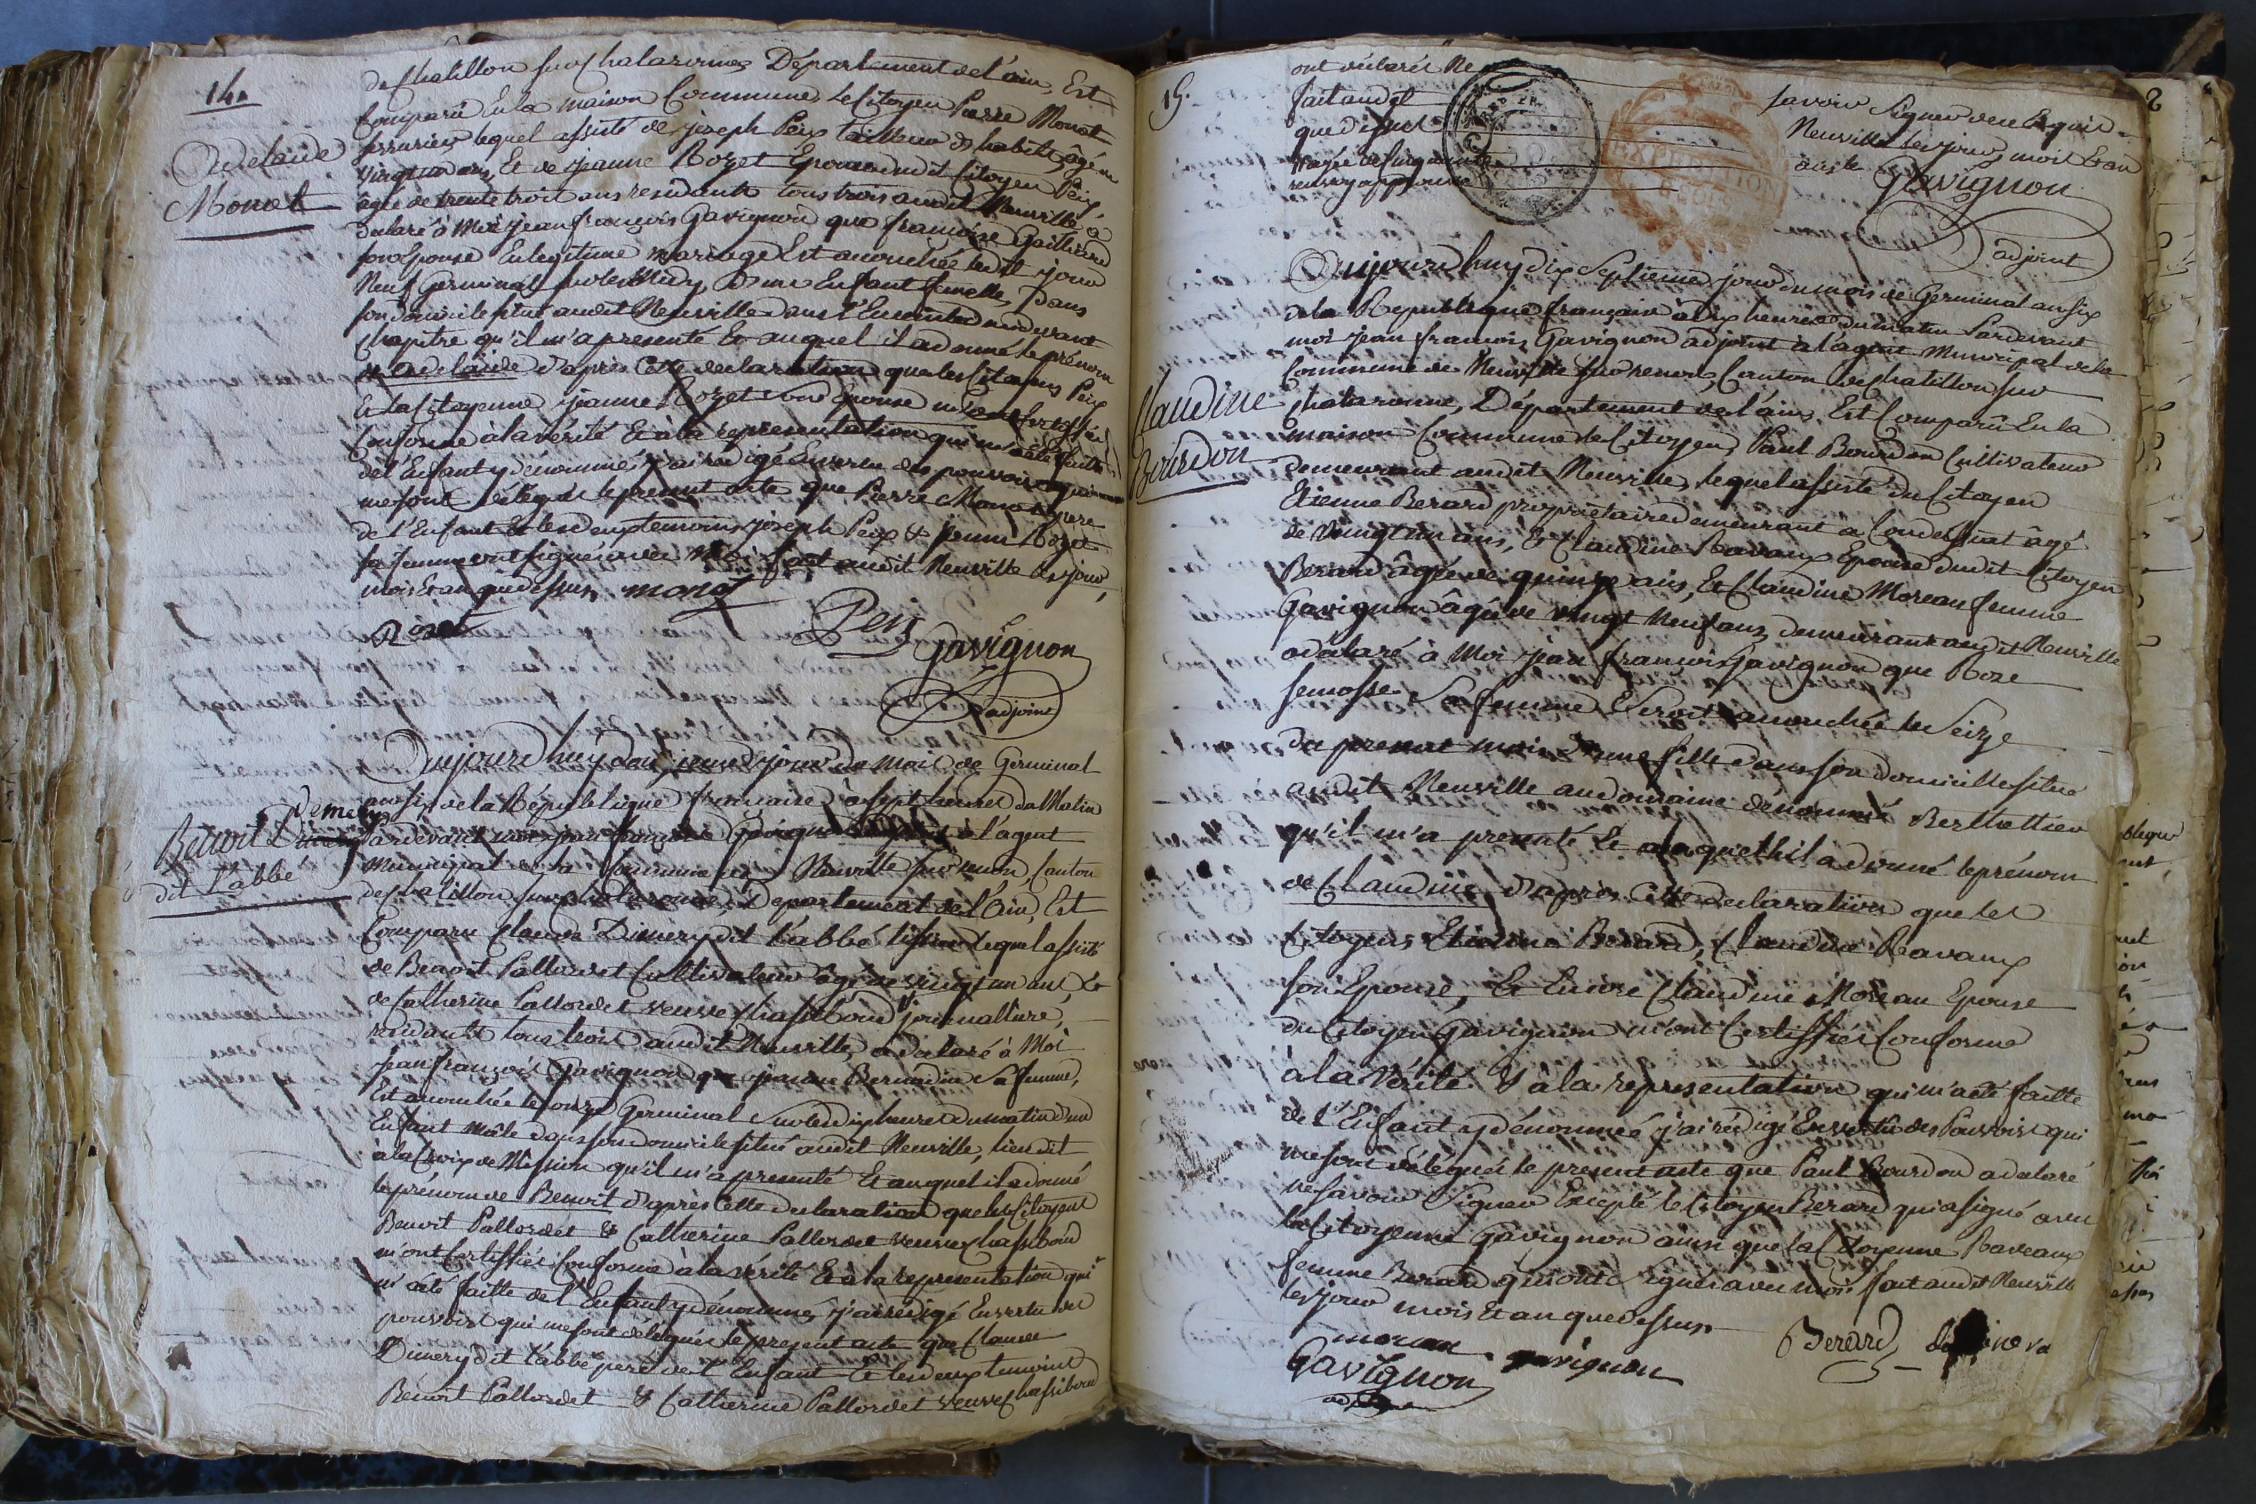 14.
de Chatillon sur Chalaronne Département de l'ain, Est
Comparû En la maison Commune, le Citoyen Pierre Monot
serrurier lequel assisté de joseph Peix tailleur d'habits, âgé
vingt un ans, Et de jeanne Rozet Epouse dudit Citoyen Peix,
agée de trente trois ans residants tous trois audit Neuville, a
declaré à Moi jean françois Gavignon que françoise
son Epouse En legitime mariage Est accouchée ledit jour
Neuf Germinal sur les Midy, D'une Enfant femelle, Dans
son domicile situé audit Neuville dans l'Enceinte
Chapitre qu'il m'a presenté Et auquel il a donné le prénom
de adelaïde d'après Cette declaration que les Citoyens Peix
Et la Citoyenne jeanne Rozet son Epouse m'ont Certiffié
Conforme à la vérité Et à la representation qui m'a été faitte
de l'Enfant y dénommé, j'ai redigé En vertu des pouvoirs qui
me sont délégués le present acte que Pierre Monot pere
de l'Enfant Et les deux temoins joseph Peix & jeanne Rozet
sa femme ont signé avec Moi fait audit Neuville les jour,
mois Et an que dessus monot
Rozet Peix
Gavignon
adjoint
Adelaide
Monot
Aujourd'huy douzieme jour du mois de Germinal
an six de la République française à sept heures du Matin
Pardevant moi jean françois Gavignon adjoint à l'agent
Municipal de la Commune de Neuville sur renon, Canton
de Chatillon sur Chalaronne, Departement de l'Ain, Est
Comparu Claude Dimery dit l'abbé lequel assisté
de Benoit Pallordet Cultivateur âgé de vingt un ans, Et
de Catherine Pallordet veuve Chassiboud journalliere,
residants tous trois audit Neuville, a declaré à Moi
jean françois Gavignon que jeanne Bernardin sa femme,
Est accouchée le onze Germinal sur les dix heures du matin d'un
Enfant mâle dans son domicile situé audit Neuville, lieu dit
à la Croix de Mission qu'il m'a presenté Et auquel il a donné
le prénom de Benoit d'après Cette declaration que les Citoyens
Benoit Pallordet & Catherine Pallordet veuve Chassiboud
m'ont Certiffiés Conforme à la vérité Et à la representation qui
m'a été faitte de l'Enfant y dénommé, j'ai rédigé En vertu des
pouvoirs qui me sont délégués le present acte que Claude
Dimery dit l'abbé pere de l'Enfant Et les deux temoins
Benoit Pallordet & Catherine Pallordet veuve Chassiboud
Demery
Benoit
dit l'abbé
15.
ont déclarés Ne savoir signer de ce Enquis
fait audit Neuville les jour, mois Et an
que dessus
Gavignon
adjoint
Aujourd'huy dix Septieme jour du mois de Germinal an six
de la Republique française à dix heures du matin Pardevant
moi jean françois Gavignon adjoint à l'agent Municipal de la
Commune de Neuville sur renon, Canton de Chatillon sur
Chalaronne, Département de l'ain, Est Comparû En la
maison Commune le Citoyen Paul Bourdon Cultivateur
demeurant audit Neuville, lequel assisté du Citoyen
Etienne Berard propriétaire demeurant a Condessiat âgé
de vingt un ans, Et Claudine Ravaux Epouse dudit Citoyen
Berard âgée de quinze ans, Et Claudine Moreau femme
Gavignon âgée de vingt Neuf ans, demeurant audit Neuville
a déclaré à Moi jean françois Gavignon que Roze
Sa femme Seroit accouchée le Seize
du present mois d'une fille dans son domicille situé
audit Neuville au domaine dénommé Berthettier
qu'il m'a presenté Et a laquelle il a donné le prénom
de Claudine, d'après Cette declaration que les
Citoyens Etienne Berard, Claudine Ravaux
son Epouse, Et Encore Claudine Moreau Epouse
du Citoyen Gavignon m'ont Certiffiés Conforme
à la Vérité & à la representation qui m'a été faitte
de l'Enfant y dénommée j'ai rédigé En vertu des Pouvoirs qui
me sont délégués le present acte que Paul Bourdon a declaré
ne savoir signer Excepté le Citoyen Berard qui a signé avec
la Citoyenne Gavignon ainsi que la Citoyenne Raveaux
femme Berard qui ont signés avec moi fait audit Neuville
les jour mois Et an que dessus
moreau gavignon Berard
Gavignon
Claudine
Bourdon